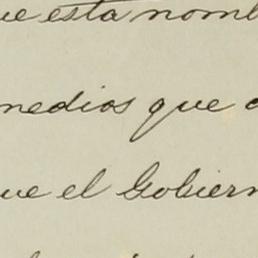 ue esta nomb
medios que
ue el Gobiern